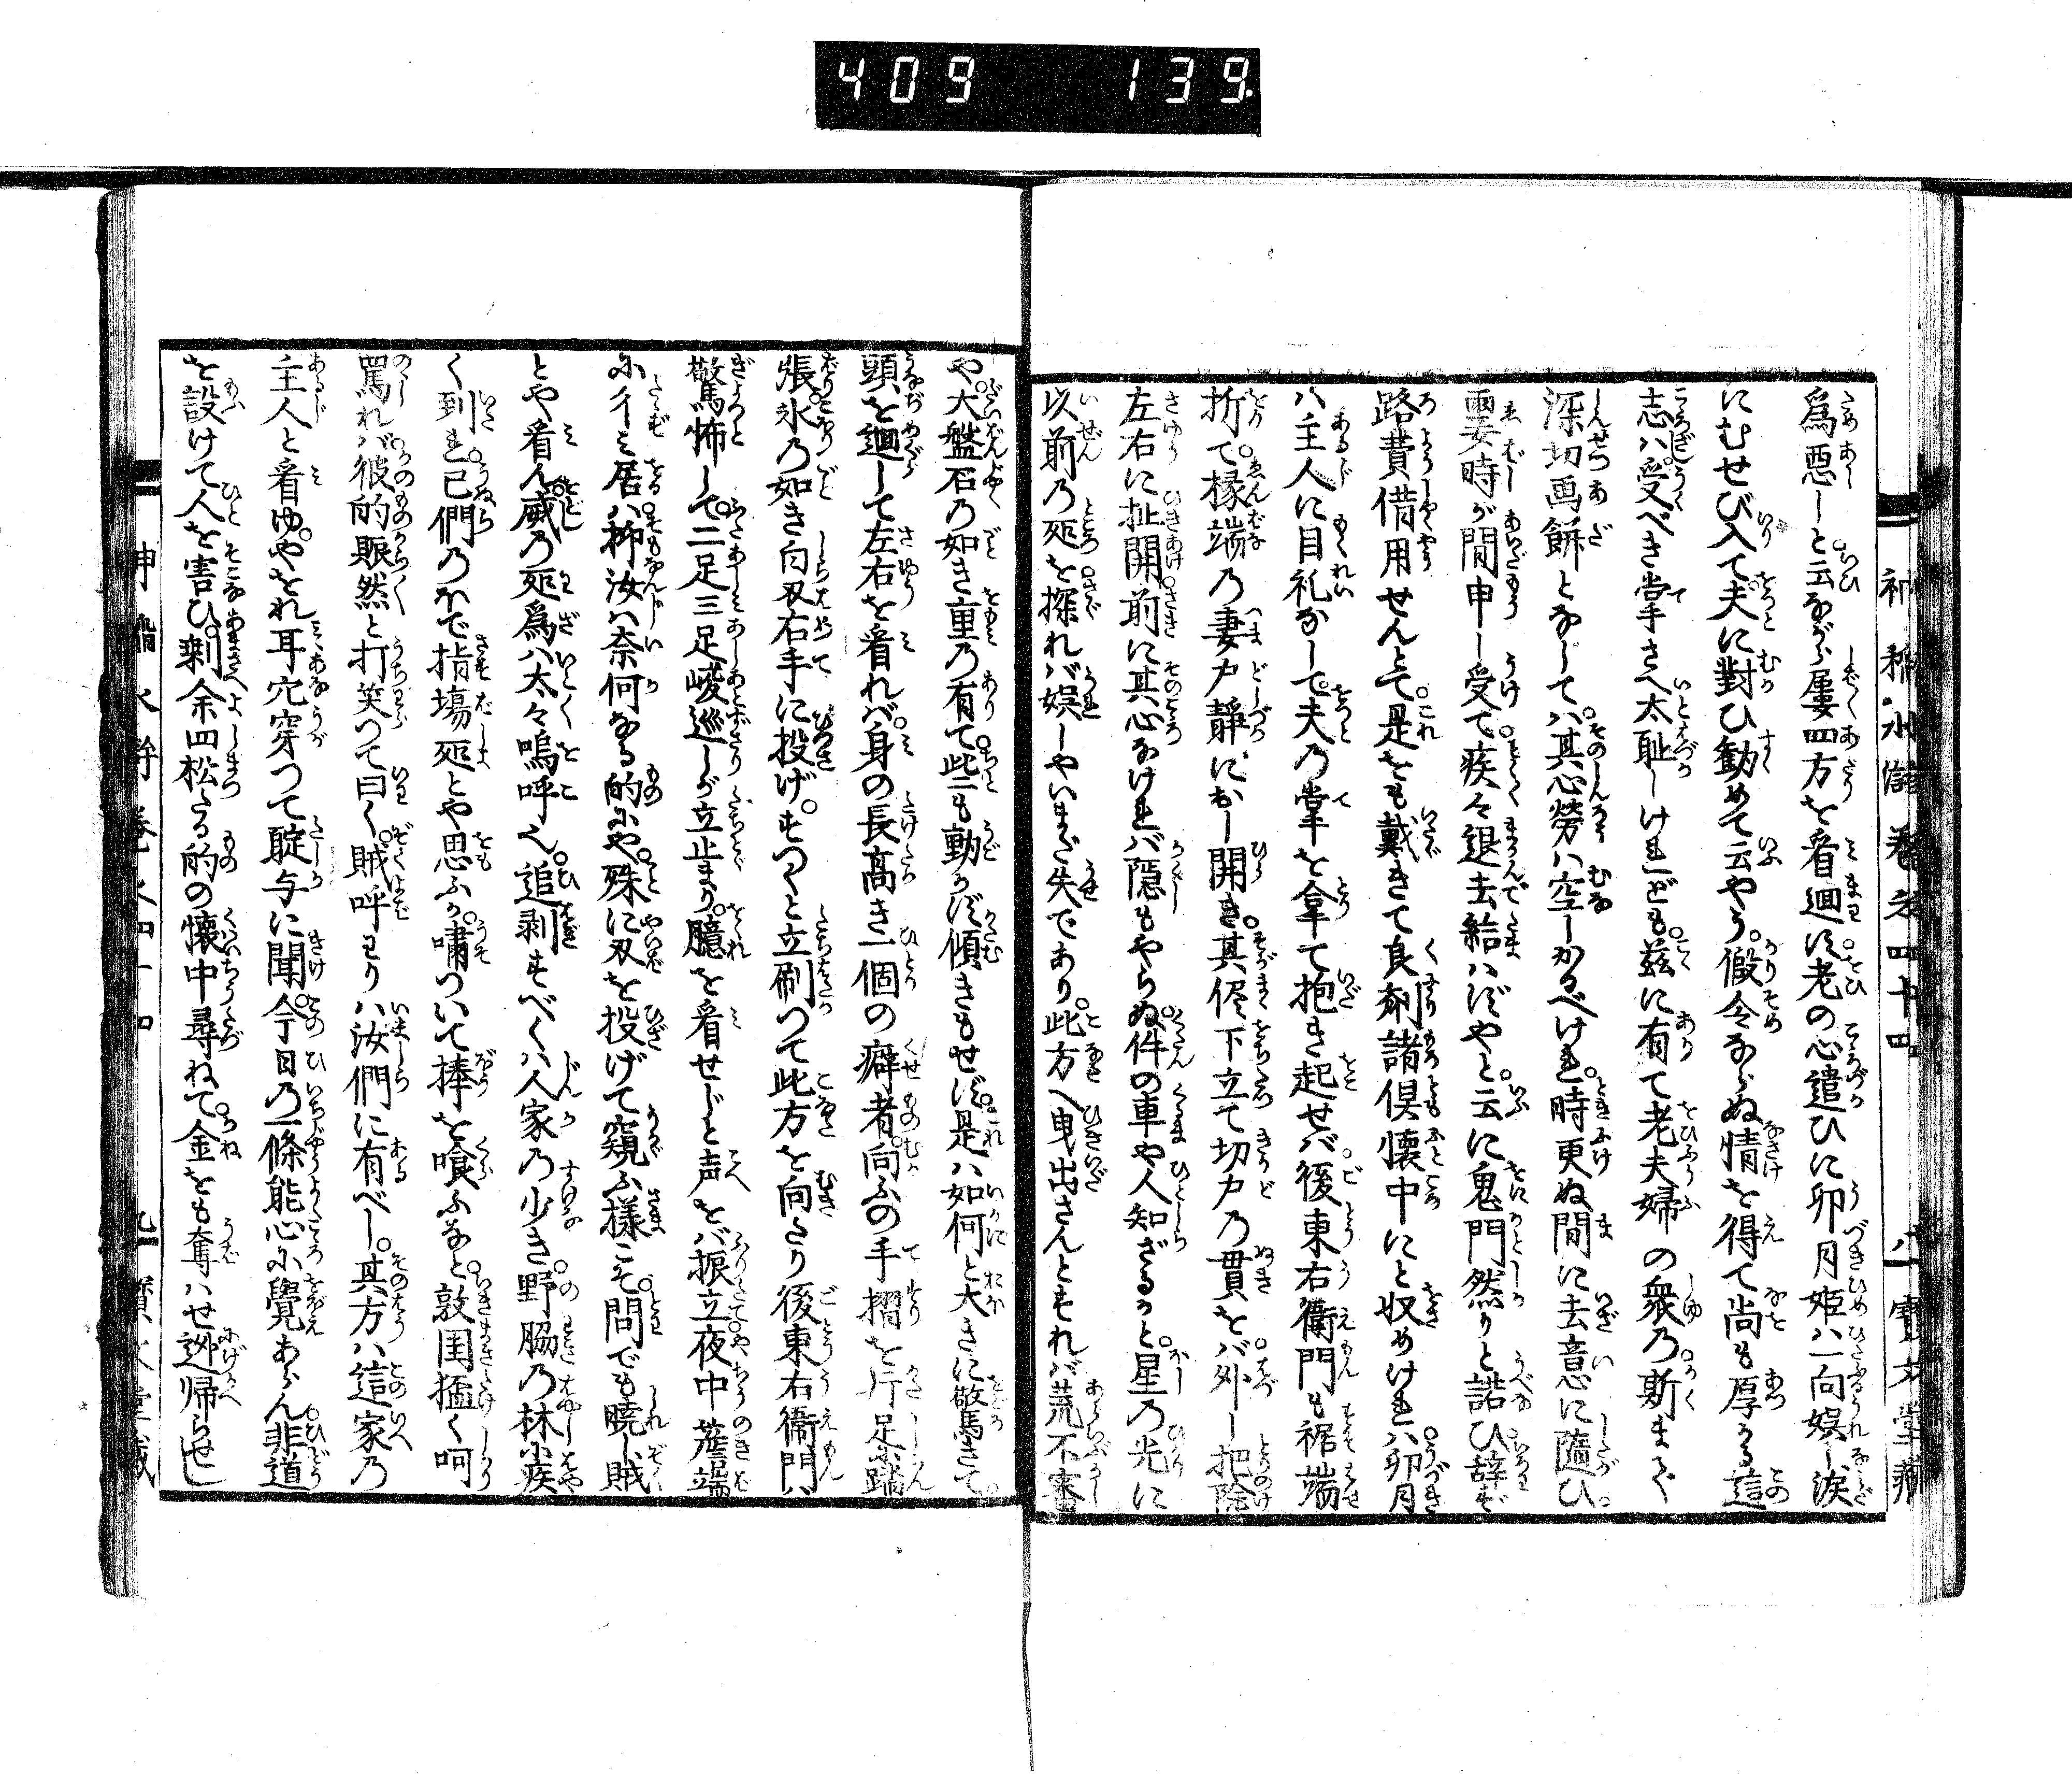 409 139.
神稲水滸巻之四十四 八 寶文堂藏
爲惡しと云ながら屢四方を看廻す老の心遣ひに卯月姫ハ一向娯し涙
にむせび入て夫に對ひ勧めて云やう假令ならぬ情を得て尚も厚かる這
志ハ受べき掌さへ太耻しけれども茲に有て老夫婦の衆乃斯まで
深切画餅となしてハ其心勞ハ空しかるべけれ時更ぬ間に去意に隨ひ
霎時が間申し受て疾々退去給ハずやと云に鬼門然りと諾ひ辞ず
路費借用せんとて是をも戴きて良剤諸倶懐中にと収めけれハ卯月
ハ主人に目礼なして夫乃掌を拿て抱き起せバ後東右衞門も裾端
折て椽端乃妻戸靜におし開き其侭下立て切戸乃貫をバ外し把除
左右に扯開前に其心なけれバ隠もやらぬ件の車や人知ざるかと星乃光に
以前乃処を探れバ娯しやいまだ失であり此方へ曳出さんとすれバ荒不審
や大盤石乃如き重乃有て些も動かず傾きもせず是ハ如何と大きに驚きて
頭を廻して左右を看れバ身の長高き一個の癖者向ふの手摺を片足に踏
張氷乃如き白刄右手に投げすつくと立刷つて此方を向たり後東右衞門ハ
驚怖して二足三足峻巡しが立止まり臆を看せじと声をバ振立夜中簷端
に彳み居ハ抑汝ハ奈何なる的にや殊に刄を投げて窺ふ樣こそ問でも曉し賊
とや看ん威乃処爲ハ太々嗚呼へ追剥すべくハ人家乃少き野脇乃林に疾
く到れ己們乃かで掯塲処とや思ふか嘯ついて捧を喰ふなと敦圉猛く呵
罵れバ彼的賑然と打笑つて曰く賊呼わりハ汝們に有べし其方ハ這家乃
主人と看ゆやをれ耳穴穿つて聢与に聞今日乃一條能心に覺あらん非道
を設けて人を害ひ剰余四松たる的の懐中尋ねて金をも奪ハせ迯帰らせし